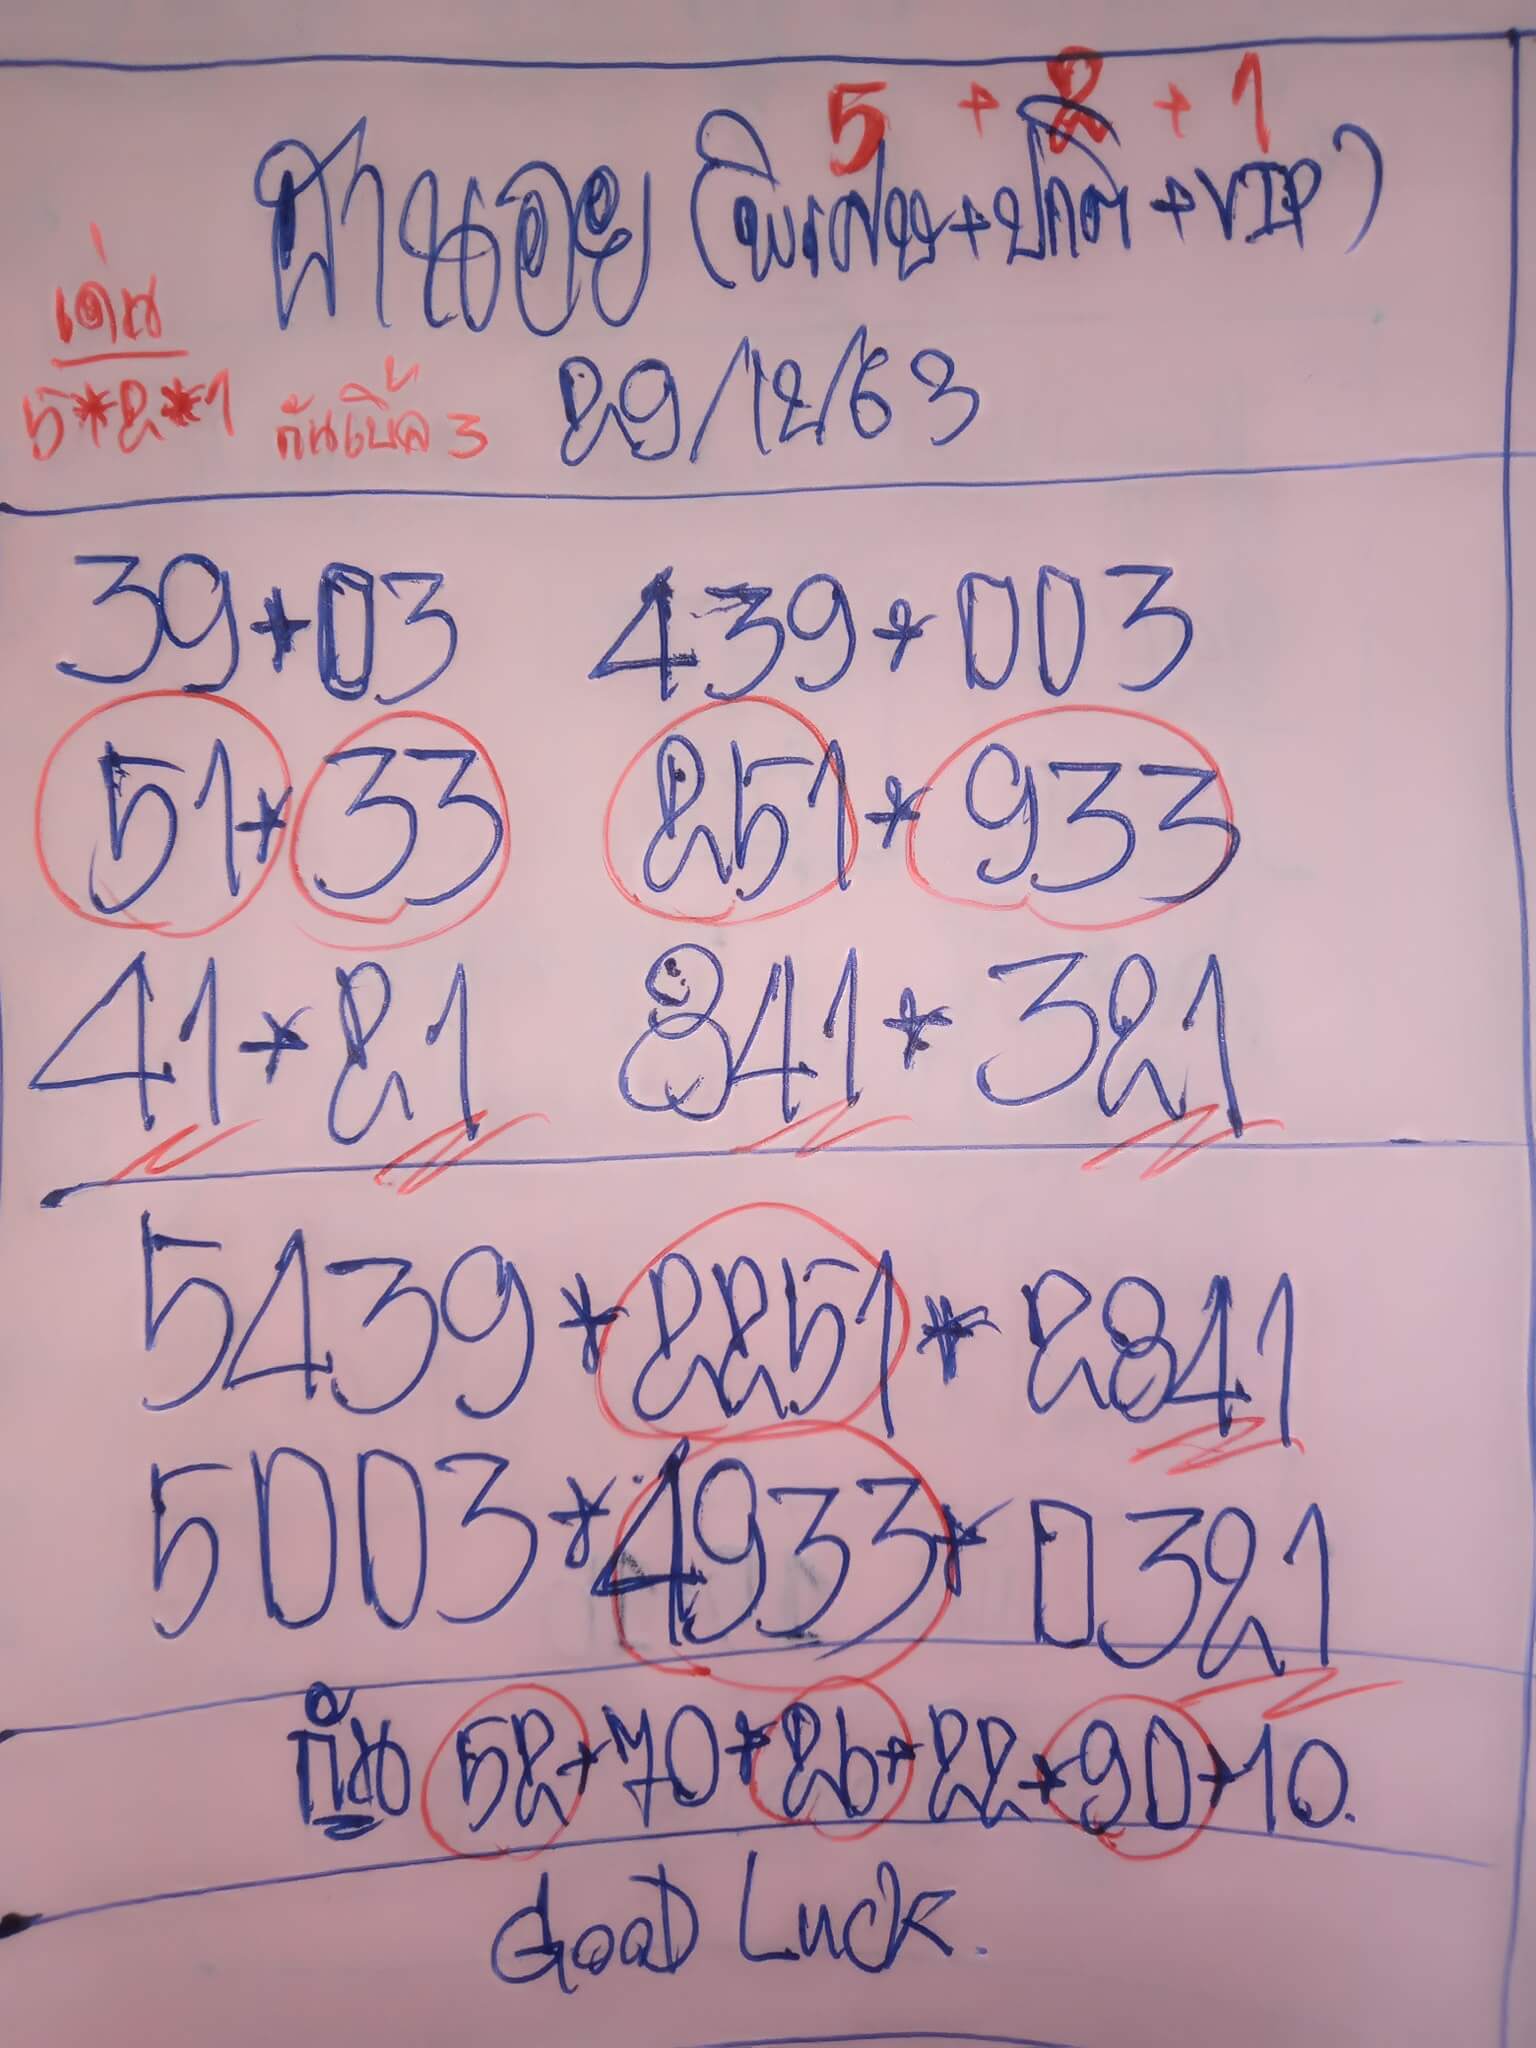 5 + 2 + 1
ฮานอย (พิเศษ+ปกติ+VIP)
เด่น
5*2*1 กันเบิ้ล 3 29/12/63
39*03 439*003
51*33 251*933
41*21 841*321
5439*2251*2841
5003*4933*0321
กัน 52+70+26+22+90+10.
GooD Luck.